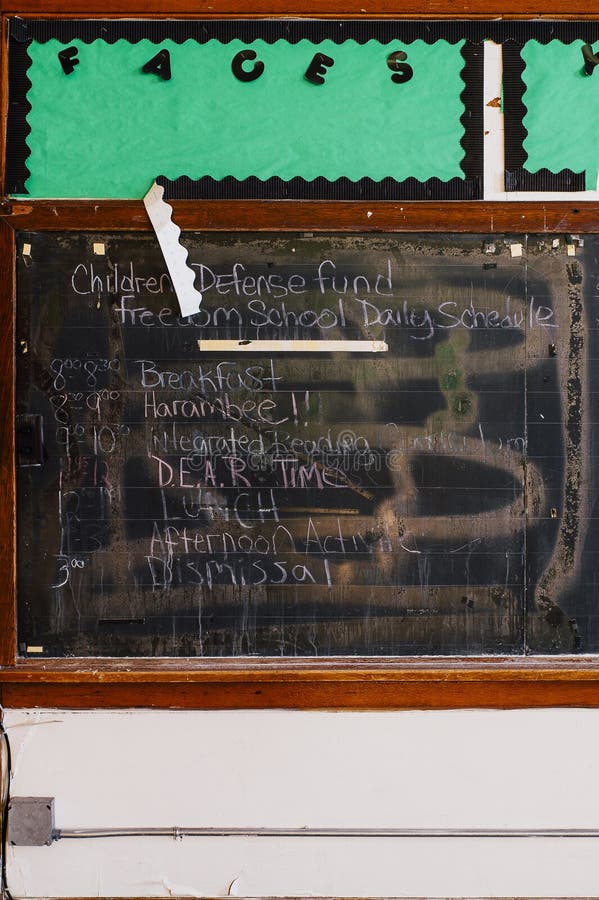 FACES
Children Defense fund
freedom School Daily Schedule
8:00 8:30 Breakfast
8:30 9:00 Harambee!!
9:00 10:00 Integrated Reading Curriculum
D.E.A.R TIME
LUNCH
Afternoon Activit
3:00 Dismissal